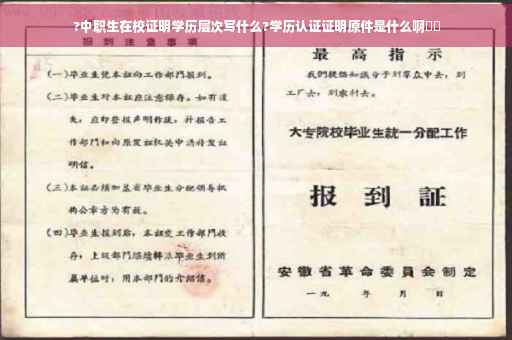 ?中职生在校证明学历层次写什么?学历认证证明原件是什么啊□□
报到注意事项
(一)毕业生凭本证向工作部门报到。
(二)毕业生对本证应注意保存。如有遗
失，应即登报声明作废，并报告工
作部门和向原发证机关申请补发证
明信。
(三)本证必须加盖省毕业生分配领导机
构公章方为有效。
(四)毕业生报到后，本证交工作部门收
存；上级部门继续转派毕业生到所
属单位时，用本部门的介绍信。
最高指示
我们提倡知识分子到群众中去，到
工厂去，到农村去。
大专院校毕业生統一分配工作
报到証
安徽省革命委員会制定
一九 年 月 日